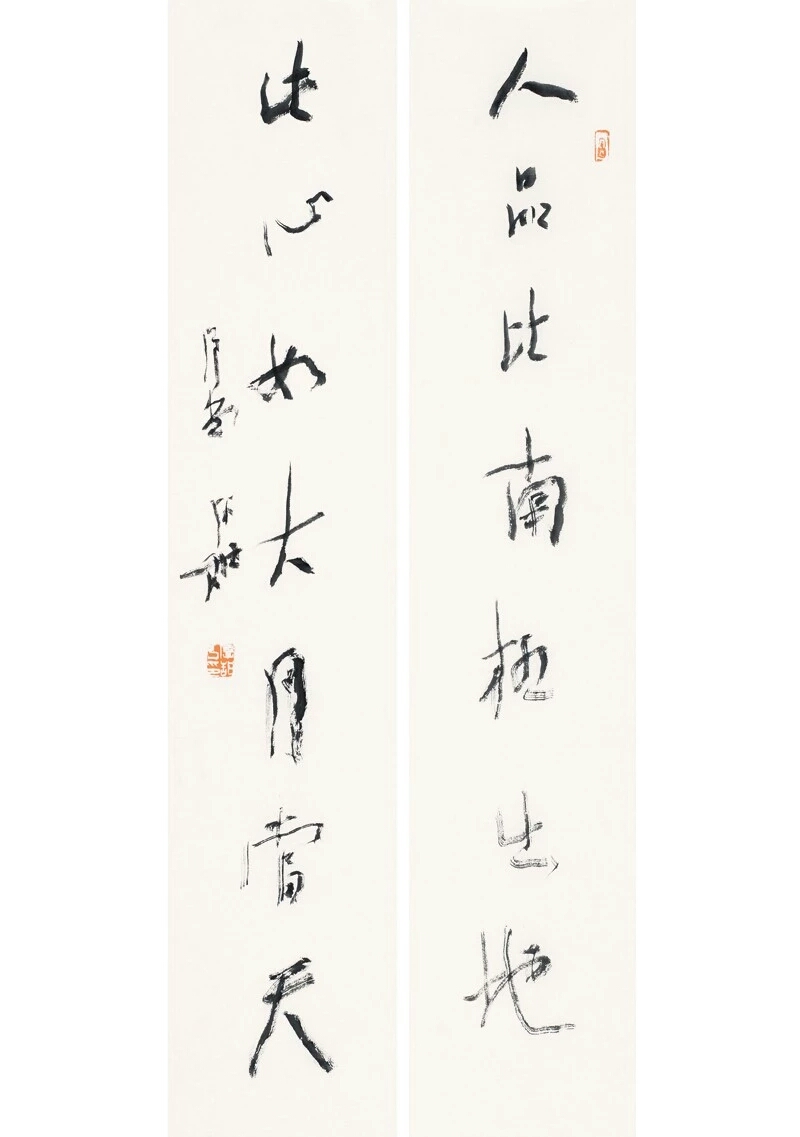 人品比南極出地
此心如大月當天